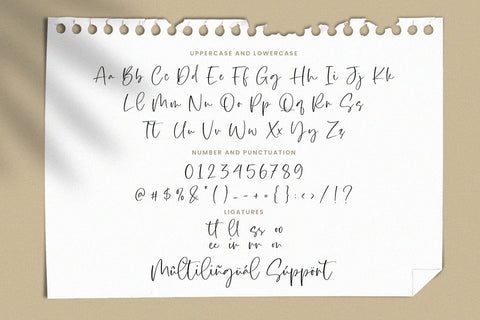 UPPERCASE AND LOWERCASE
Aa Bb Cc Dd Ee Ff Gg Hh Ii Jj Kk
Ll Mm Nn Oo Pp Qq Rr Ss
Tt Uu Vv Ww Xx Yy Zz
NUMBER AND PUNCTUATION
0123456789
@#$%&*()_-+={}:<>/!?
LIGATURES
tt ll ss oo
ee ir rr on
Múltilíñgúál Súppórt